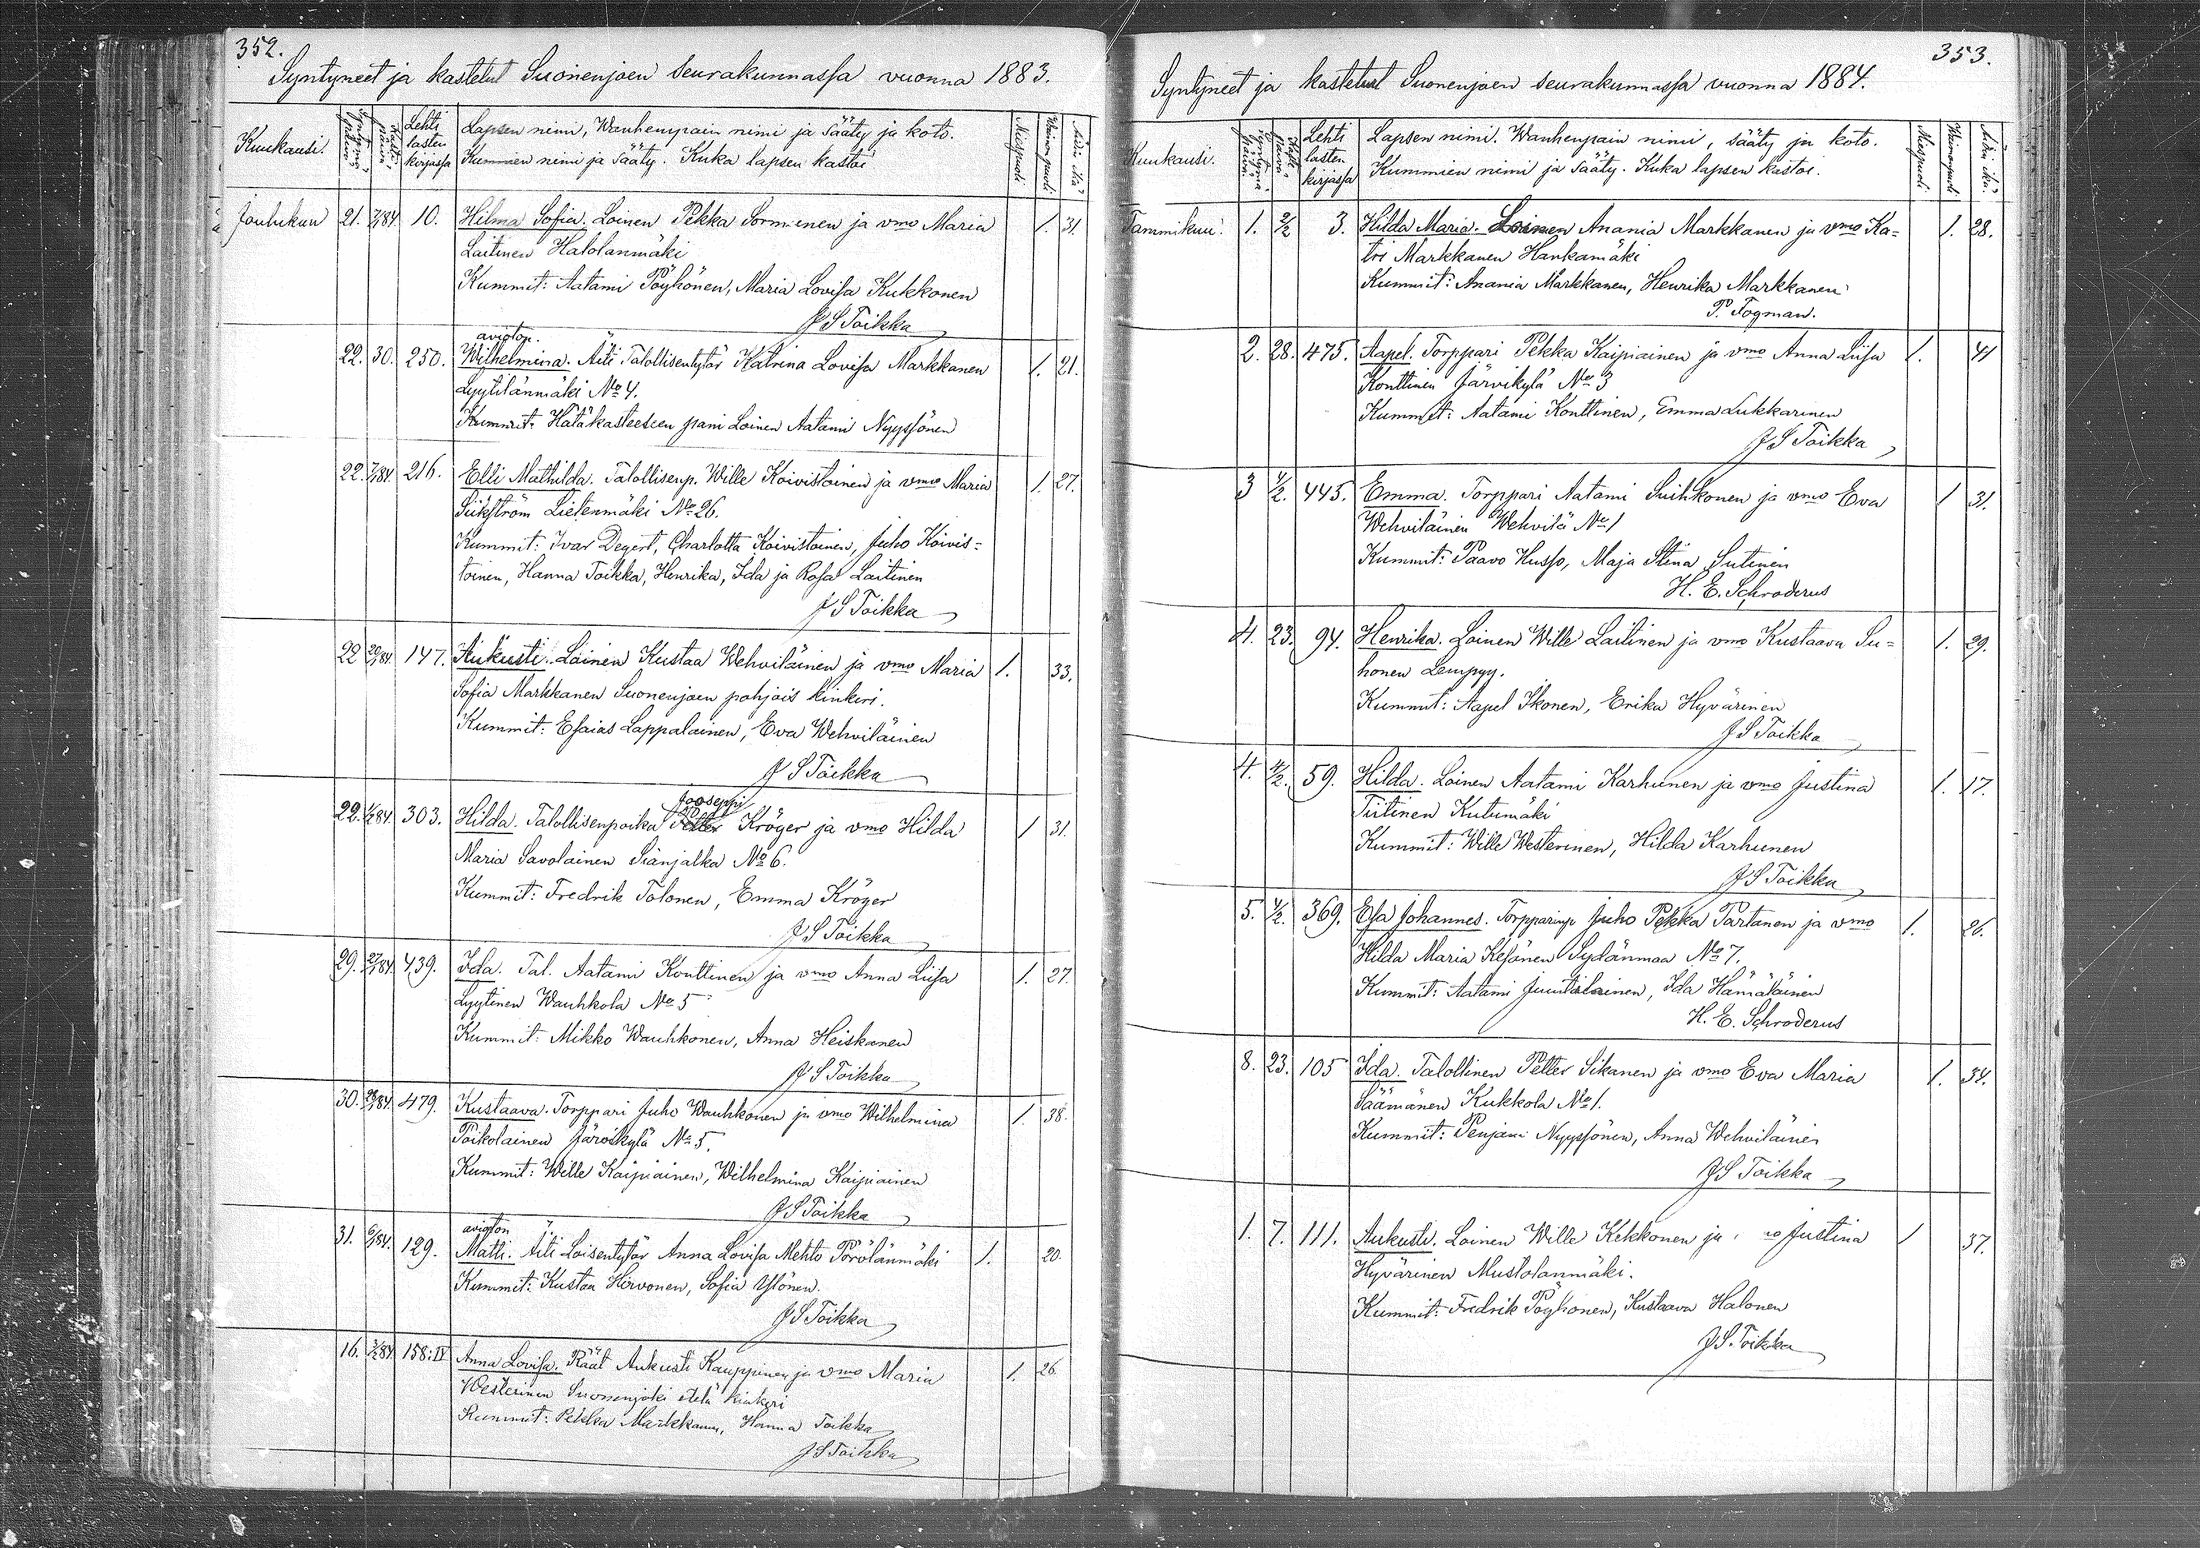 352.
Syntyneet ja kastetut Suonenjoen seurakunnassa vuonna 1883.
Kuukausi. Syntymä päivä Kaste päivä Lehti lasten kirjassa Lapsen nimi, Wanhempain nimi ja Sääty ja koto. Kummien nimi ja Sääty. Kuka lapsen kastoi Miespuoli Waimopuoli Äidin ikä
Joulukuu 21. 7/84. 10. Hilma Sofia. Loinen Pekka Sormunen ja vmo Maria 1. 31.
Laitinen Halolanmäki
Kummit: Aatami Pöyhönen, Maria Lovisa Kukkonen
J S Toikka
avioton.
22. 30. 250. Wilhelmina. Äiti Talollisentytär Katrina Lovisa Markkanen 1. 21.
Lyytilänmäki No 4.
Kummit: Hätäkasteeseen pani Loinen Aatami Nyyssönen
22. 7/84. 216. Elli Mathilda. Talollisenp. Wille Koivistoinen ja vmo Maria 1. 27.
Sükström Lietenmäki No 26.
Kummit: Ivar Degert, Charlotta Koivistoinen, Juho Koivis=
toinen, Hanna Toikka, Henrika, Ida ja Rosa Laitinen
J S Toikka
22 20/84. 147. Aukusti. Loinen Kustaa Wehviläinen ja vmo Maria 1. 33.
Sofia Markkanen Suonenjoen pohjois kinkeri.
Kummit: Esaias Lappalainen, Eva Wehviläinen
J S Toikka
Jooseppi
22. 303. Hilda. Talollisenpoika Petter Kröger ja vmo Hilda 1 31.
Maria Savolainen Sianjalka No 6.
Kummit: Fredrik Tolonen, Emma Kröger
J S Toikka
29. 27/84. 439. Ida. Tal. Aatami Konttinen ja vmo Anna Liisa 1. 27.
Lyytinen Wauhkola No 5
Kummit: Mikko Wauhkonen, Anna Heiskanen
J S Toikka
30. 479. Kustaava. Torppari Juho Wauhkonen ja vmo Wilhelmina 1. 38.
Toikolainen Järvikylä No 5.
Kummit: Wille Kaipiainen, Wilhelmina Kaipiainen
J S Toikka
avioton
31. 6/84. 129. Matti. Äiti Loisentytär Anna Lovisa Mehto Pörölänmäki 1. 20.
Kummit: Kustaa Hirvonen, Sofia Ylönen.
J S Toikka
16. 158:IV Anna Lovisa. Räät. Aukusti Kauppinen ja vmo Maria 1. 26
Westerinen Suonenjoki etelä kinkeri
Kummit: Pekka Markkanen, Hanna Toikka
J S Toikka
353.
Syntyneet ja kastetut Suonenjoen seurakunnassa vuonna 1884.
Kuukausi. Syntymä päivä. Kaste päivä Lehti lasten kirjassa Lapsen nimi. Wanhempain nimi, sääty ja koto. Kummien nimi ja Sääty. Kuka lapsen kastoi. Miespuoli Waimopuoli Äidin ikä.
Tammikuu. 1. 2/2 3. Hilda Maria. Loinen Anania Markkanen ja vmo Ka= 1. 28.
tri Markkanen Hankamäki
Kummit: Anania Markkanen, Henrika Markkanen
P. Fogman.
2. 28. 475. Aapel. Torppari Pekka Kaipiainen ja vmo Anna Liisa 1. 41
Konttinen Järvikylä No 3
Kummit: Aatami Konttinen, Emma Lukkarinen
J S Toikka
3 4/2. 445. Emma. Torppari Aatami Suihkonen ja vmo Eva 1 31.
Wehviläinen Wehvilä No 1
Kummit: Paavo Husso, Maja Stina Sutinen
H. E. Schroderus
4. 23. 94. Henrika. Loinen Wille Laitinen ja vmo Kustaava Su= 1. 29.
honen Lempyy.
Kummit: Aapel Ikonen, Erika Hyvärinen
J S Toikka
4. 4/2. 59. Hilda. Loinen Aatami Karhunen ja vmo Justina 1. 17.
Tiitinen Kutumäki
Kummit: Wille Westerinen, Hilda Karhunen
J S Toikka
5. 4/2. 369. Esa Johannes. Torpparinp. Juho Pekka Partanen ja vmo 1. 26.
Hilda Maria Kesänen Sydänmaa No 7.
Kummit: Aatami Juutilainen, Ida Hämäläinen
H. E. Schroderus
8. 23. 105 Ida. Talollinen Petter Sikanen ja vmo Eva Maria 1. 34.
Säämänen Kukkola No 1.
Kummit: Penjami Nyyssönen, Anna Wehviläinen
J S Toikka
1. 7. 111. Aukusti. Loinen Wille Kekkonen ja vmo Justina 1 37.
Hyvärinen Mustolanmäki.
Kummit: Fredrik Pöyhönen, Kustaava Halonen
J. S. Toikka